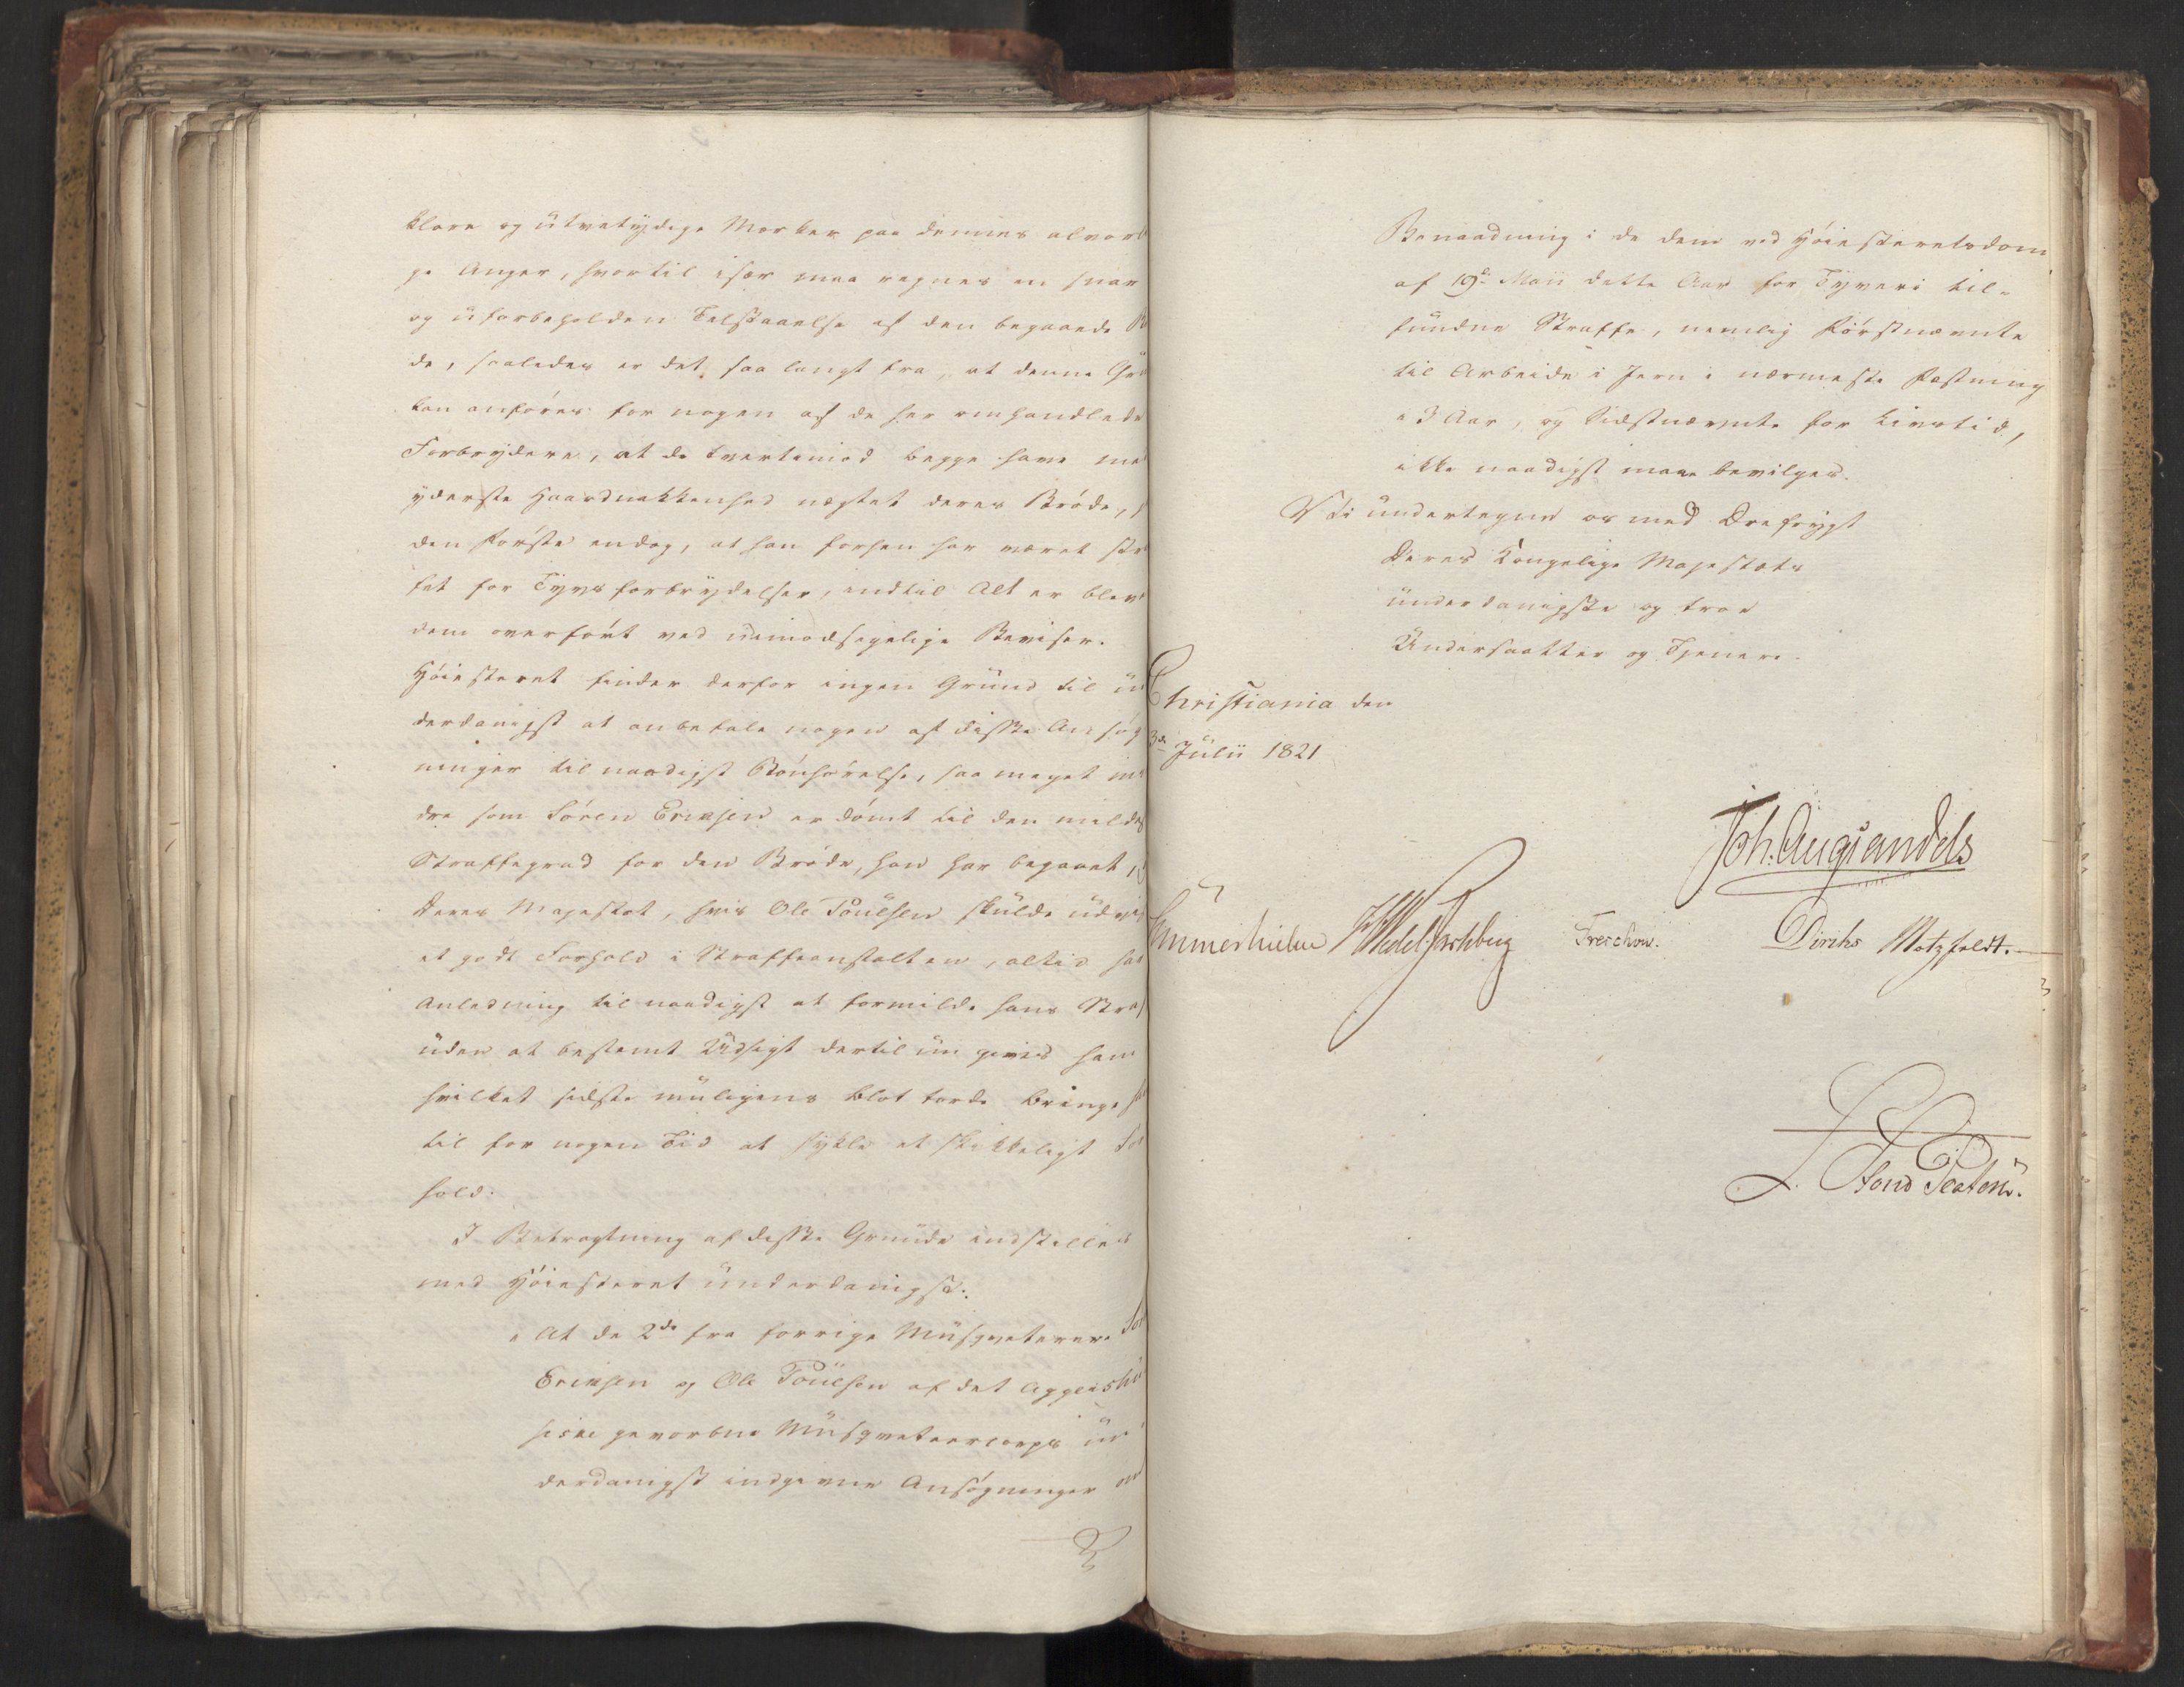 klare og utvetydige Mærker paa dennes alvorli
ge Anger, hvortil især maa regnes en snar
og uforbeholden Tilstaaelse af den begaaede Brö
de, saaledes er det saa langt fra, at denne Gru
kan anföres for nogen af de her omhandlede
Forbrydere, at de tvertimod begge have med
yderste Haardnakkenhed nægtet deres Bröde,
den förste endog, at han forhen har været straf
fet for Tyvsforbrydelser, indtil Alt er blevet
dem overfört ved uimodsigelige Beviser.
Höiesteret finder derfor ingen Grund til un
derdanigst at anbefale nogen af disse Ansög
ninger til naadigst Bönhörelse, saa meget min
dre som Sören Eriksen er dömt til den mildes
Straffegrad for den Bröde, han har begaaet, og
Deres Majestæt, hvis Ole Poulsen skulde udvis
et godt Forhold i Straffeanstalten, altid har
Anledning til naadigst at formilde hans Straf
uden at bestemt Udsigt dertil nu gives ham
hvilket sidste muligens blot torde bringe ham
til for nogen Tid at hykle et skikkeligt For
hold.
I Betragtning af disse Grunde indstilles
med Höiesteret underdanigst:
" At de 2de fra forrige Musqveterere Sör
Eriksen og Ole Poulsen af det Aggershu
siske gevorbne Musqveteercorps un
derdanigst indgivne Ansögninger om
Benaadning i de dem ved Höiesteretsdom
af 19de Maii dette Aar for Tyveri til-
fundne Straffe, nemlig Förstnævnte
til Arbeide i Jern i nærmeste Fæstning
i 3 Aar, og Sidstnævnte for Livstid,
ikke naadigst maae bevilges.
Vi undertegne os med Ærefrygt
Deres Kongelige Majestæts
underdanigste og troe
Undersaatter og Tjenere.
Christiania den
3de Julii 1821
Joh. Aug Sandels
Sommerhielm HWedel Jarlsberg Treschow. Diriks Motzfeldt.
L. Stoud Platou.